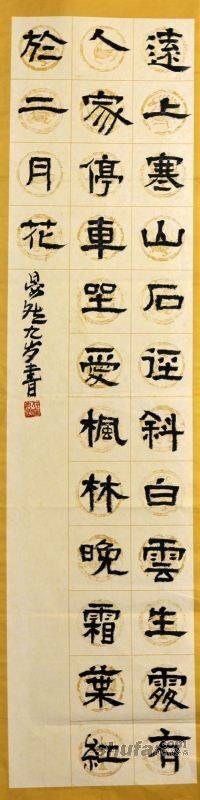 遠上寒山石径斜白雲生處有
人家停車坐愛楓林晚霜葉紅
於二月花
九岁書